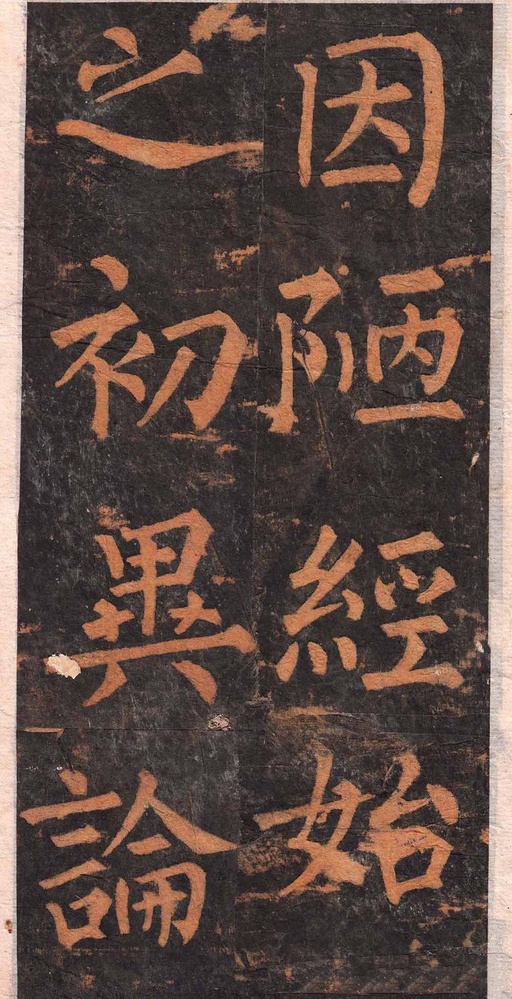 因陋經始
之初異論